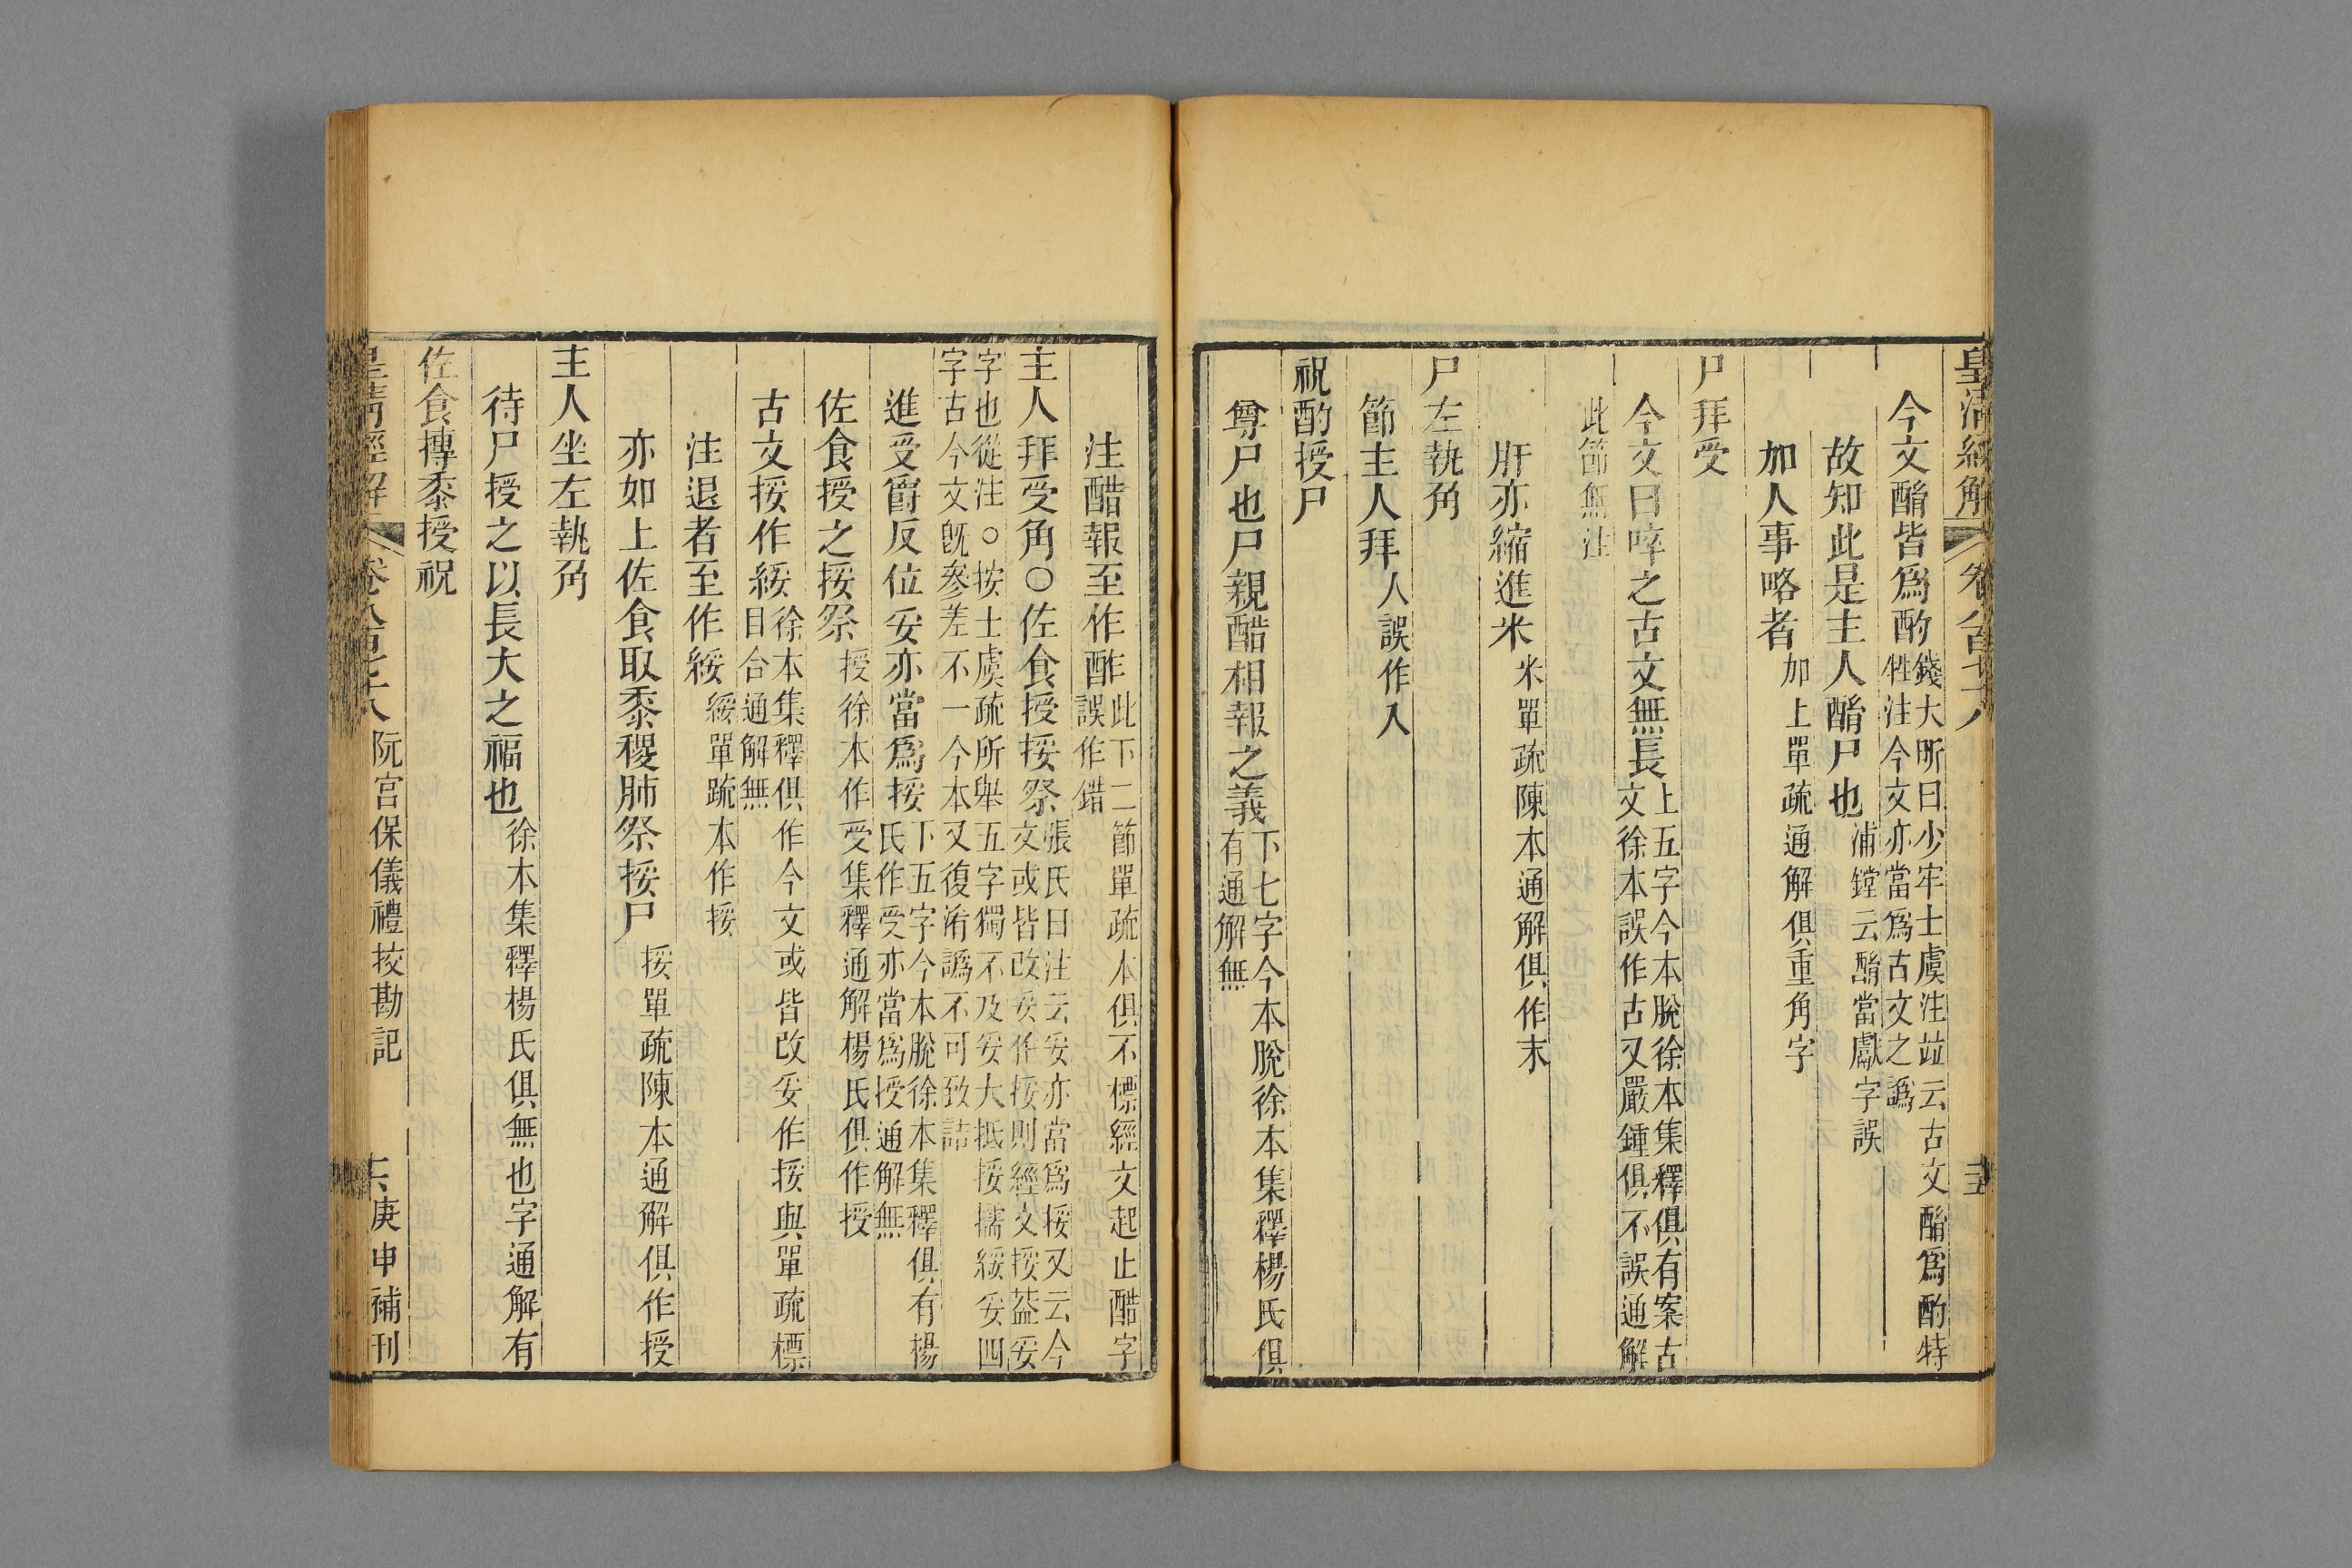 皇清經解 卷八百七十八
今文酳皆爲酌錢大昕曰少牢士虞注竝云古文酳爲酌特牲注今文亦當爲古文之譌
故知此是主人酳尸也浦鏜云酳當獻字誤
加人事略者加上單疏通解俱重角字
尸拜受
今文曰啐之古文無長上五字今本脫徐本集釋俱有案古文徐本誤作古又嚴鍾俱不誤通解
此節無注
肝亦縮進米米單疏陳本通解俱作末
尸左執角
節主人拜人誤作入
祝酌授尸
尊尸也尸親醋相報之義下七字今本脫徐本集釋楊氏俱有通解無
注醋報至作酢此下二節單疏本俱不標經文起止醋字誤作錯
主人拜受角○佐食授挼祭張氏曰注云妥亦當爲挼又云今文或皆改妥作挼則經文挼葢妥
字也從注○按士虞疏所舉五字獨不及妥大抵挼擩綏妥四字古今文旣參差不一今本又復淆譌不可致詰
進受爵反位妥亦當爲挼下五字今本脫徐本集釋俱有楊氏作受亦當爲授通解無
佐食授之挼祭授徐本作受集釋通解楊氏俱作授
古文挼作綏徐本集釋俱作今文或皆改妥作挼與單疏標目合通解無
注退者至作綏綏單疏本作挼
亦如上佐食取黍稷肺祭挼尸挼單疏陳本通解俱作授
主人坐左執角
待尸授之以長大之福也徐本集釋楊氏俱無也字通解有
佐食摶黍授祝
皇清經解 卷八百七十八 阮宮保儀禮挍勘記 庚申補刊